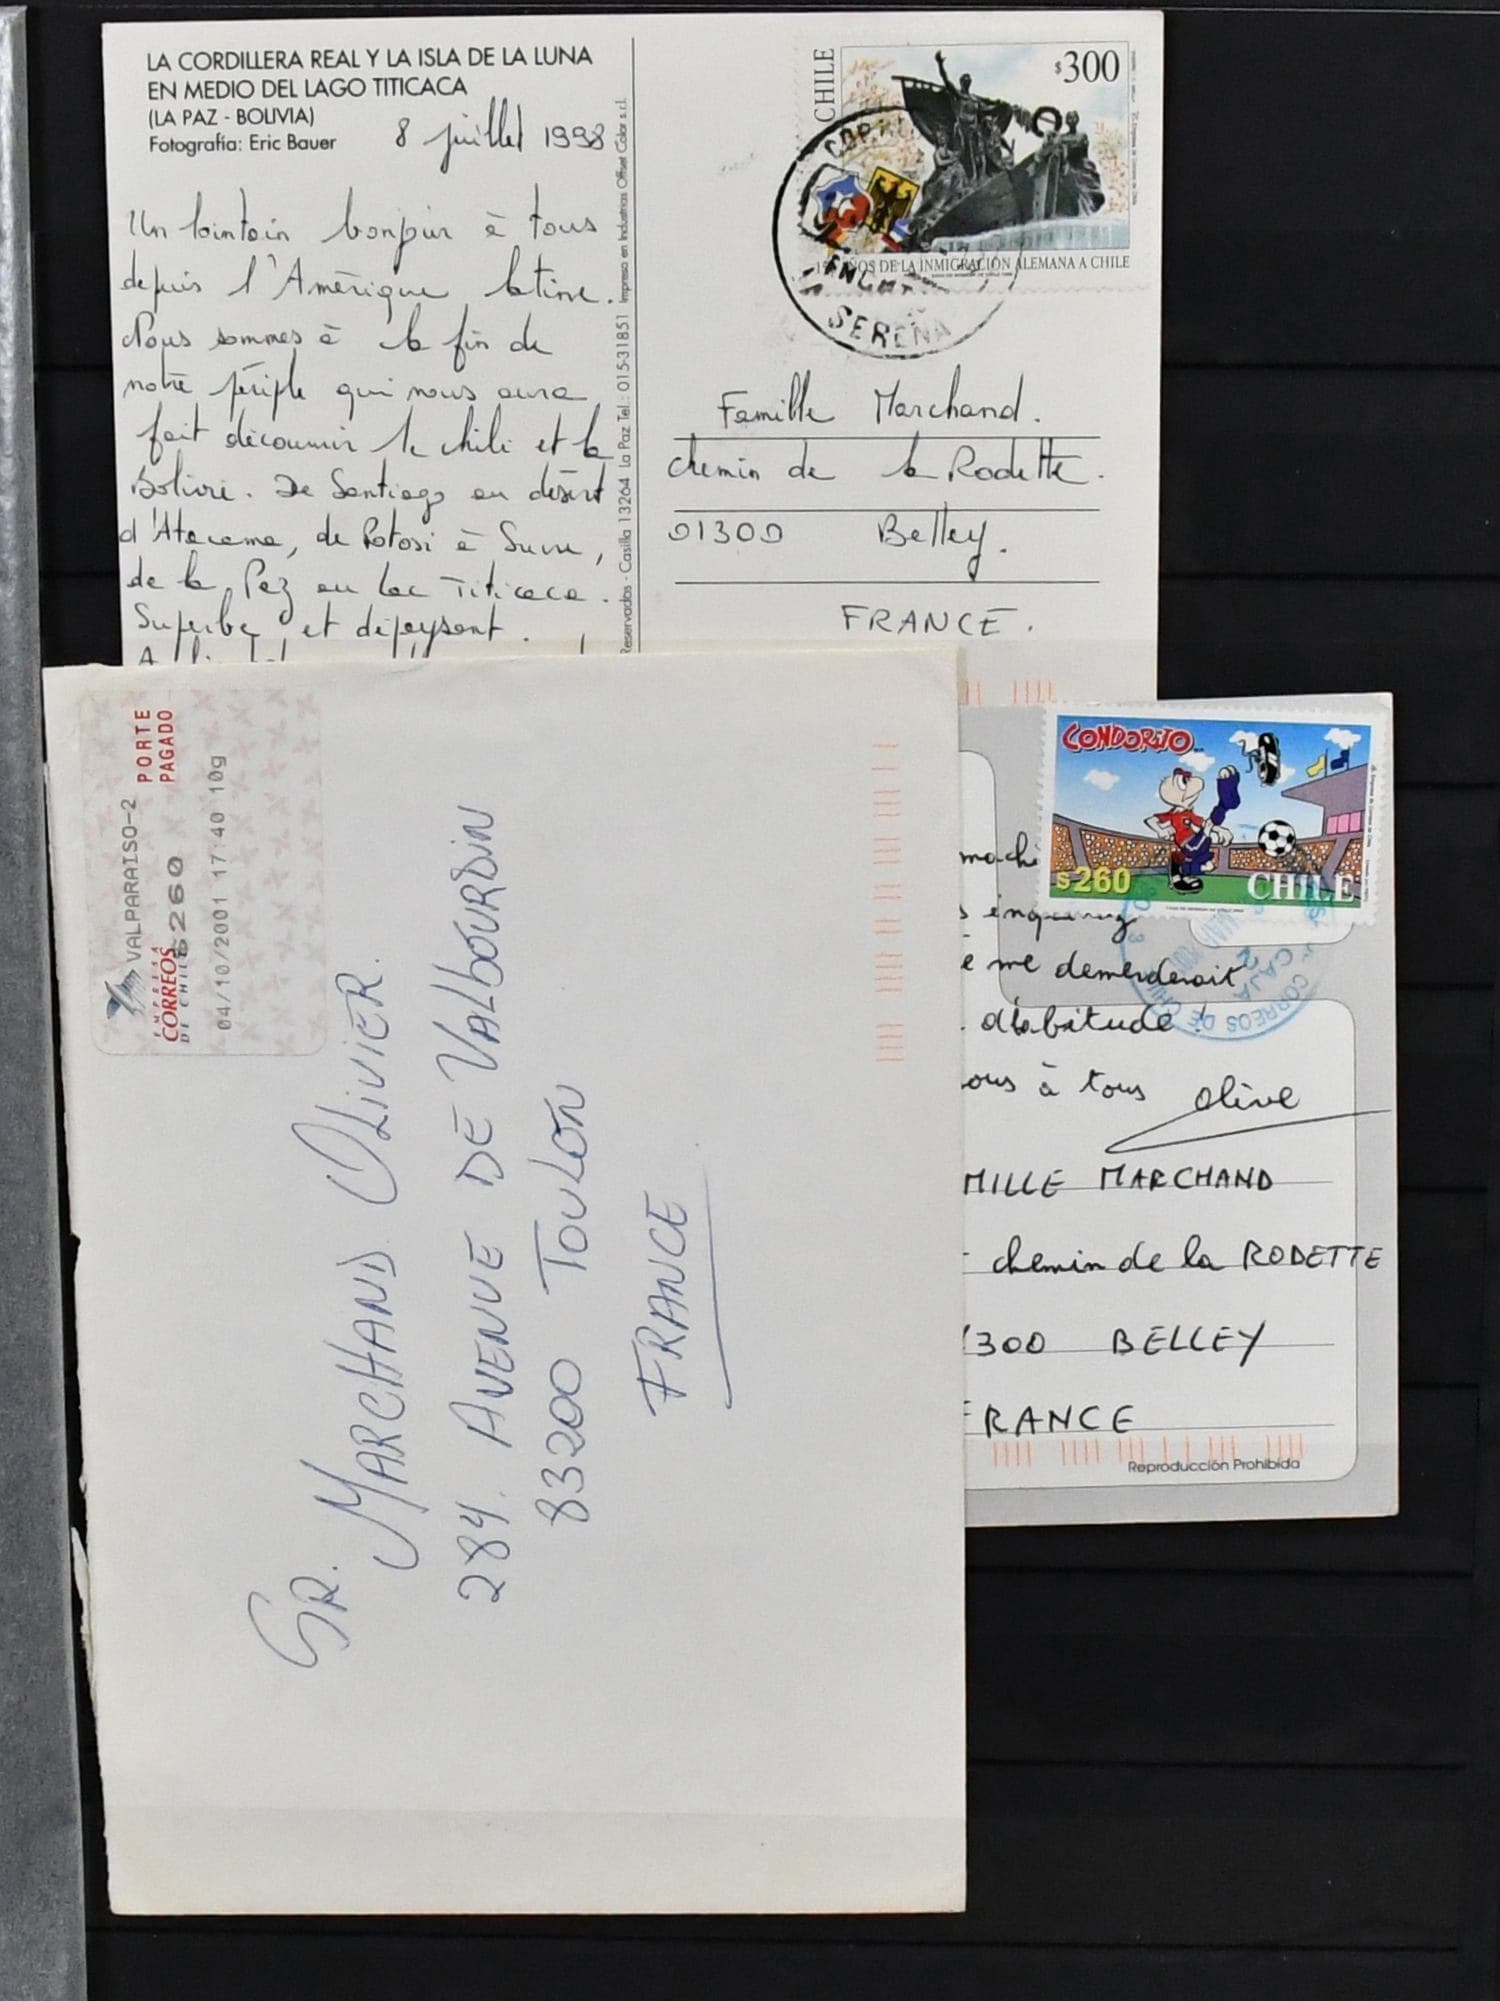 LA CORDILLERA REAL Y LA ISLA DE LA LUNA
EN MEDIO DEL LAGO TITICACA
(LA PAZ - BOLIVIA)
Fotografía: Eric Bauer
8 juillet 1998
Un lointain bonjour à tous
depuis l'Amérique latine.
Nous sommes à la fin de
notre périple qui nous aura
fait découvrir le chili et la
Bolivie. De Santiago au désert
d'Atacama, de Potosi à Sucre,
de la Paz au lac Titicaca.
Superbe et dépaysant.
Reservados - Casilla 13264 La Paz Tel.: 015-31851 Impreso en Industrias Offset Color s.r.l.
CHILE
$300
AÑOS DE LA INMIGRACIÓN ALEMANA A CHILE
SERENA
Famille Marchand.
chemin de la Rodette.
01300 Belley.
FRANCE.
PORTE
PAGADO
VALPARAISO-2
$260
04/10/2001 17:40 10g
EMPRESA
CORREOS
DE CHILE
SR.
MARCHAND OLIVIER.
284. AVENUE DE VALBOURDIN
83200 TOULON
FRANCE
CONDORITO
$260
CHILE
CORREOS DE CHILE
CAJA
2
me demerderait
d'habitude !
ous à tous olive
MILLE MARCHAND
chemin de la RODETTE
300 BELLEY
RANCE
Reproducción Prohibida